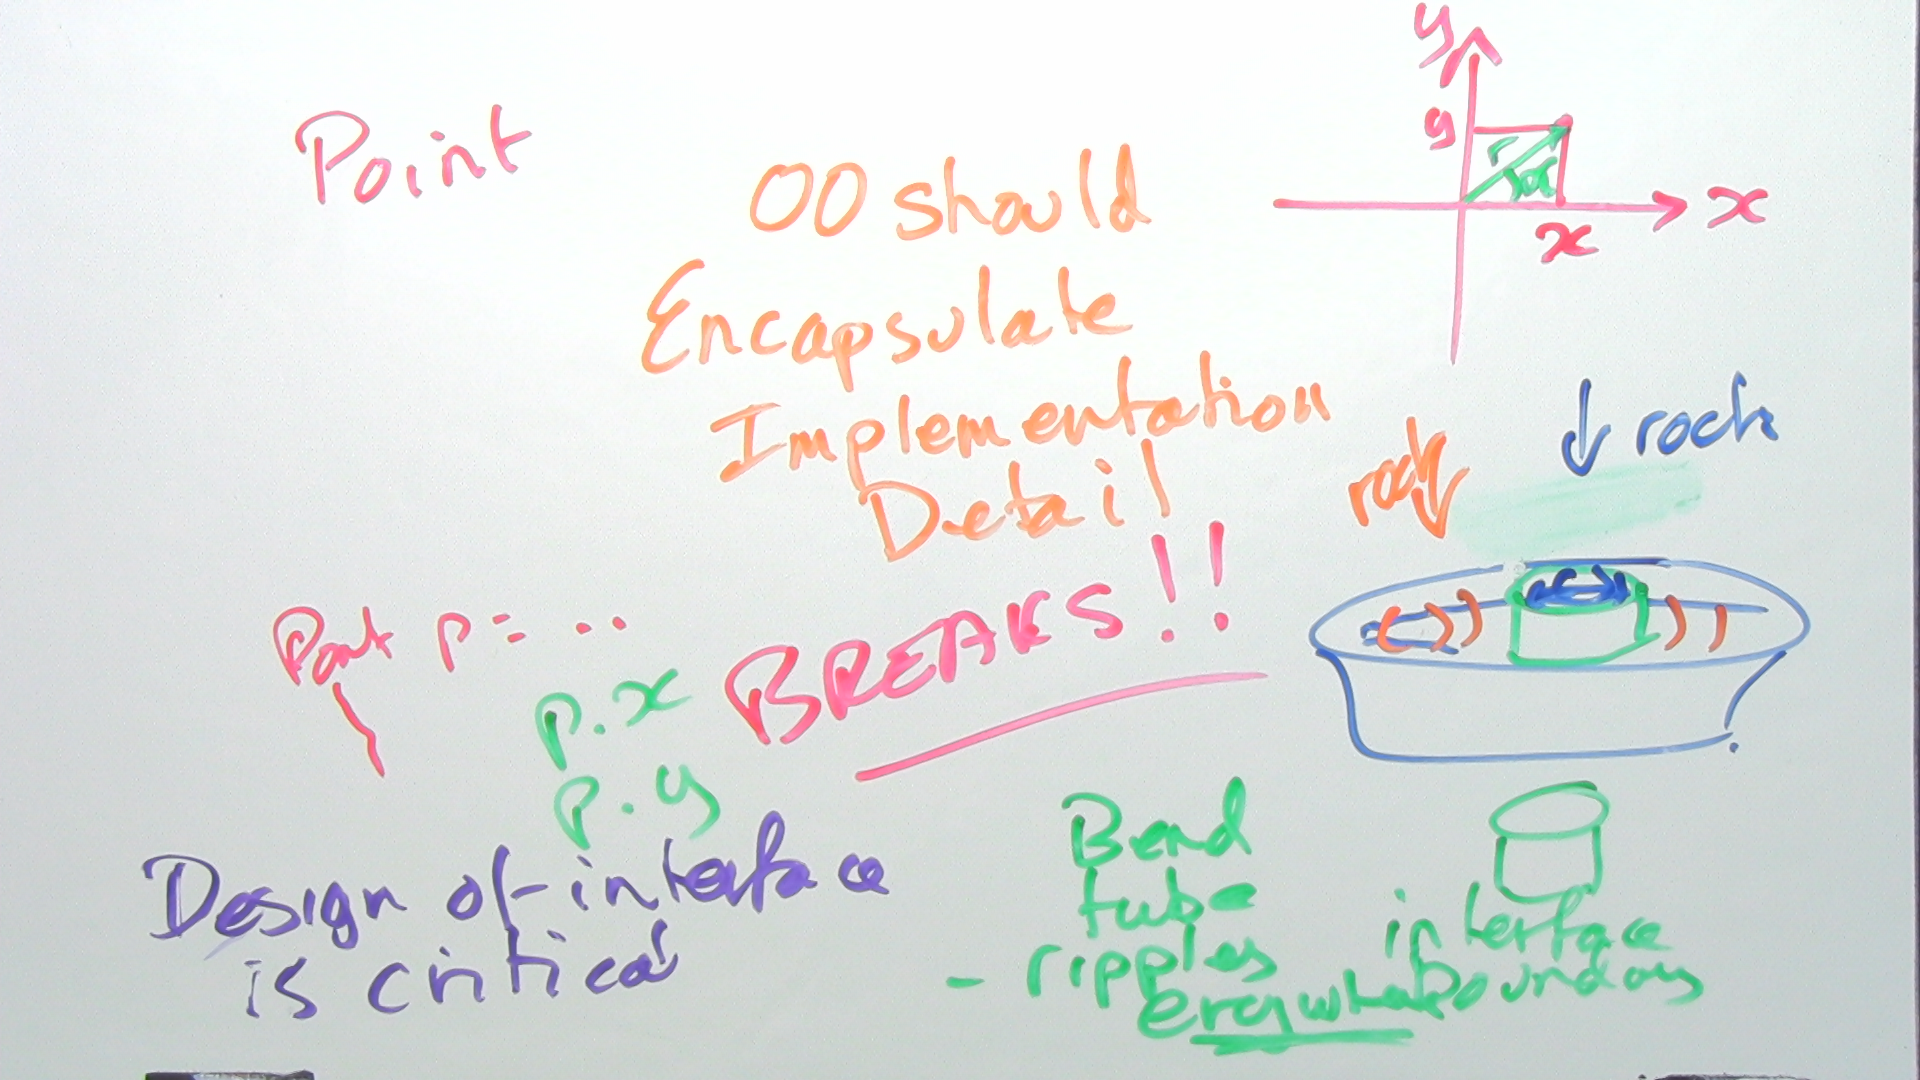 Point
OO should
Encapsulate
Implementation
Detail
y
y
r
α
x
x
rock
rock
Point p = ..
p.x
p.y
BREAKS!!
Design of interface
is critical
Bend
tube
- ripples
everywhere
interface
boundary